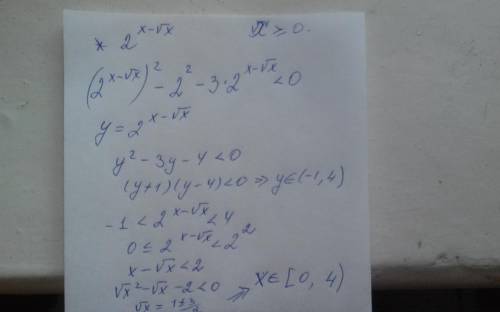 * 2^(x-√x)    x ≥ 0.
(2^(x-√x))² - 2² - 3·2^(x-√x) < 0
y = 2^(x-√x)
y² - 3y - 4 < 0
(y+1)(y-4) < 0 => y ∈ (-1, 4)
-1 < 2^(x-√x) < 4
0 ≤ 2^(x-√x) < 2²
x - √x < 2
√x² - √x - 2 < 0 => x ∈ [0, 4)
√x =